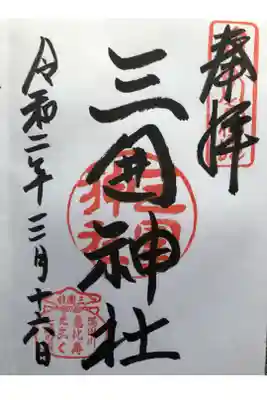 奉拝
三囲神社
令和二年三月十六日